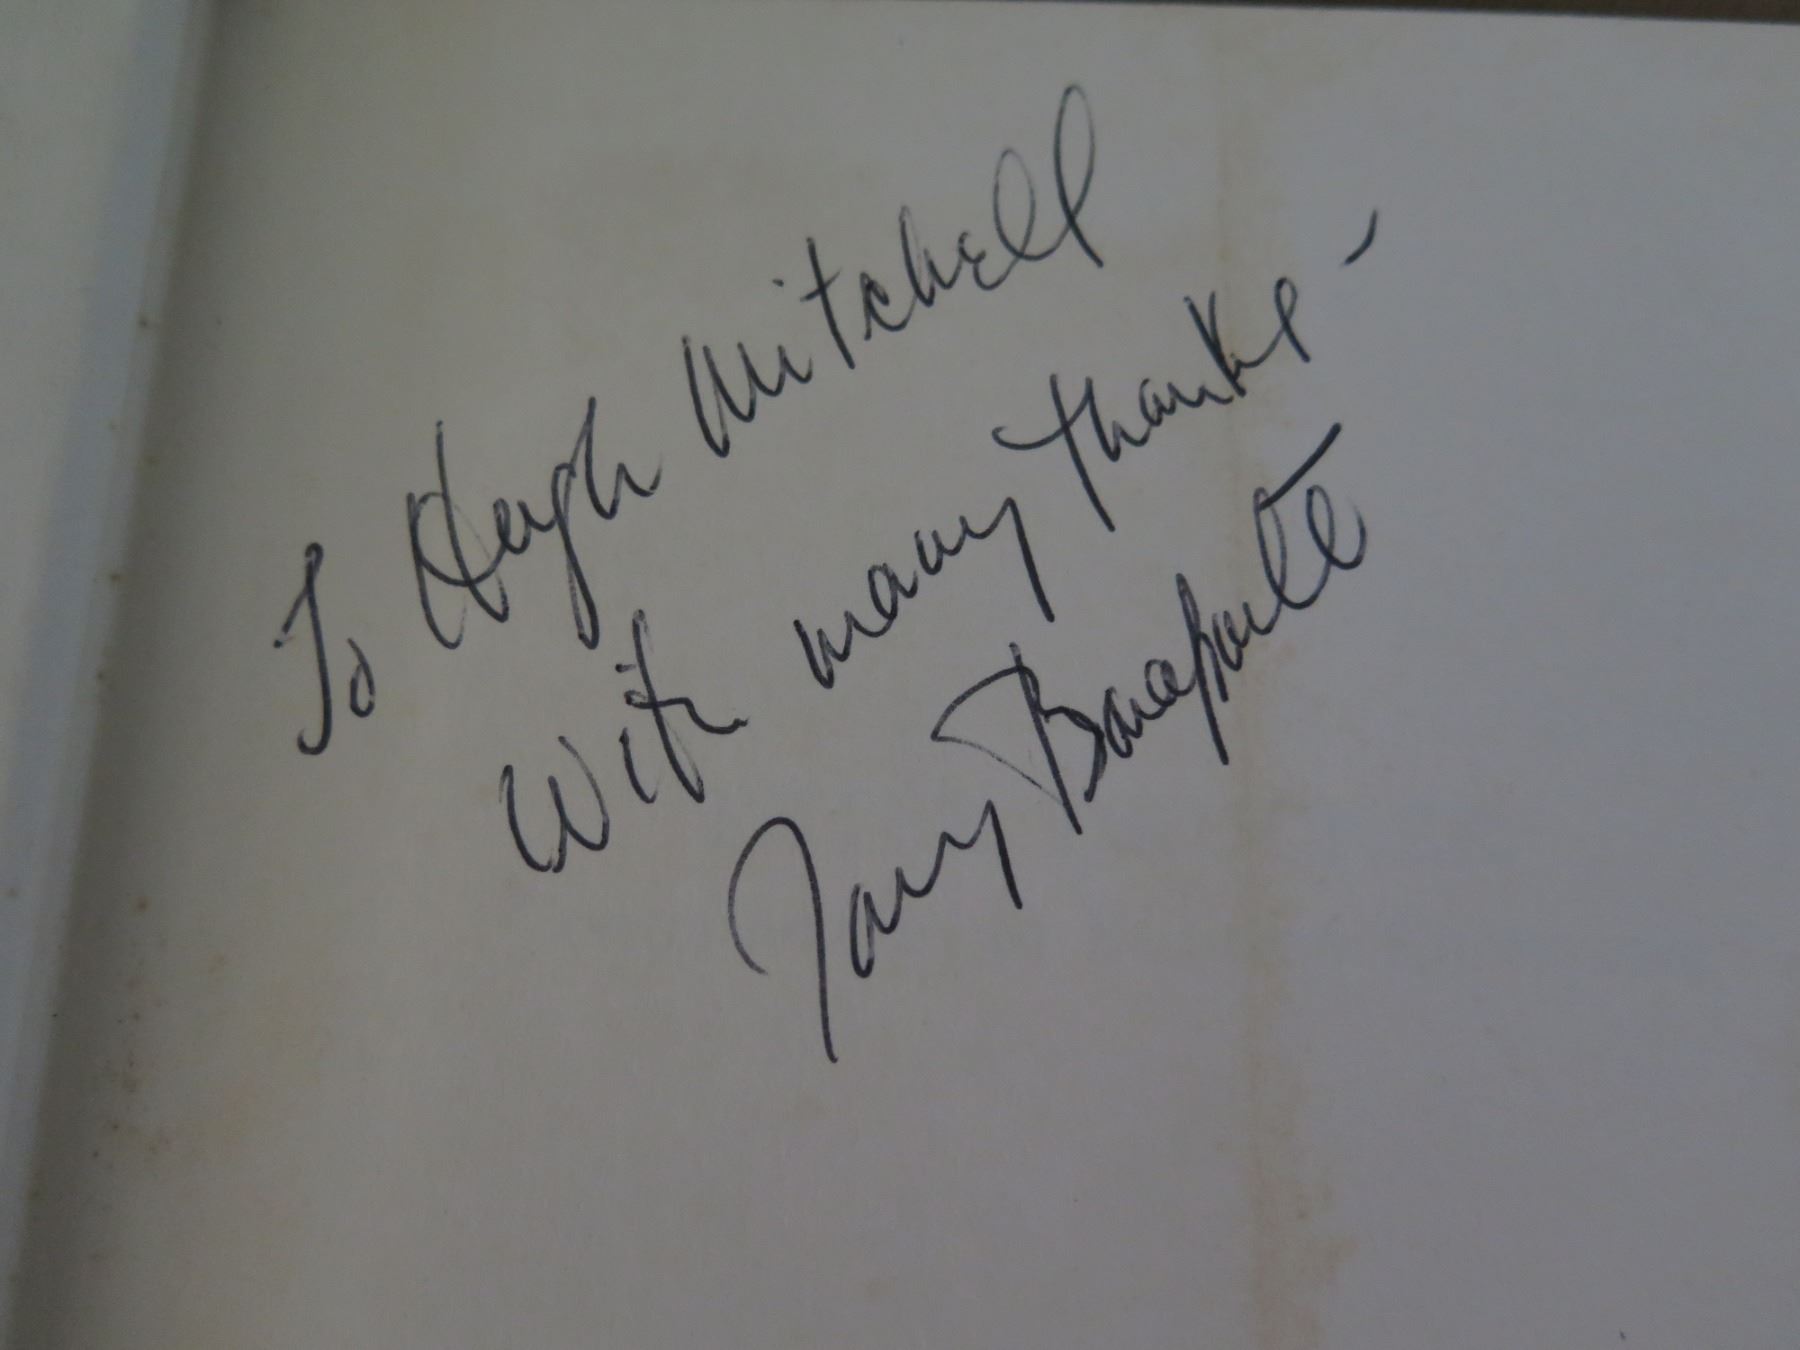 To Hugh Mitchell
With many thanks -
Tony Bonaparte